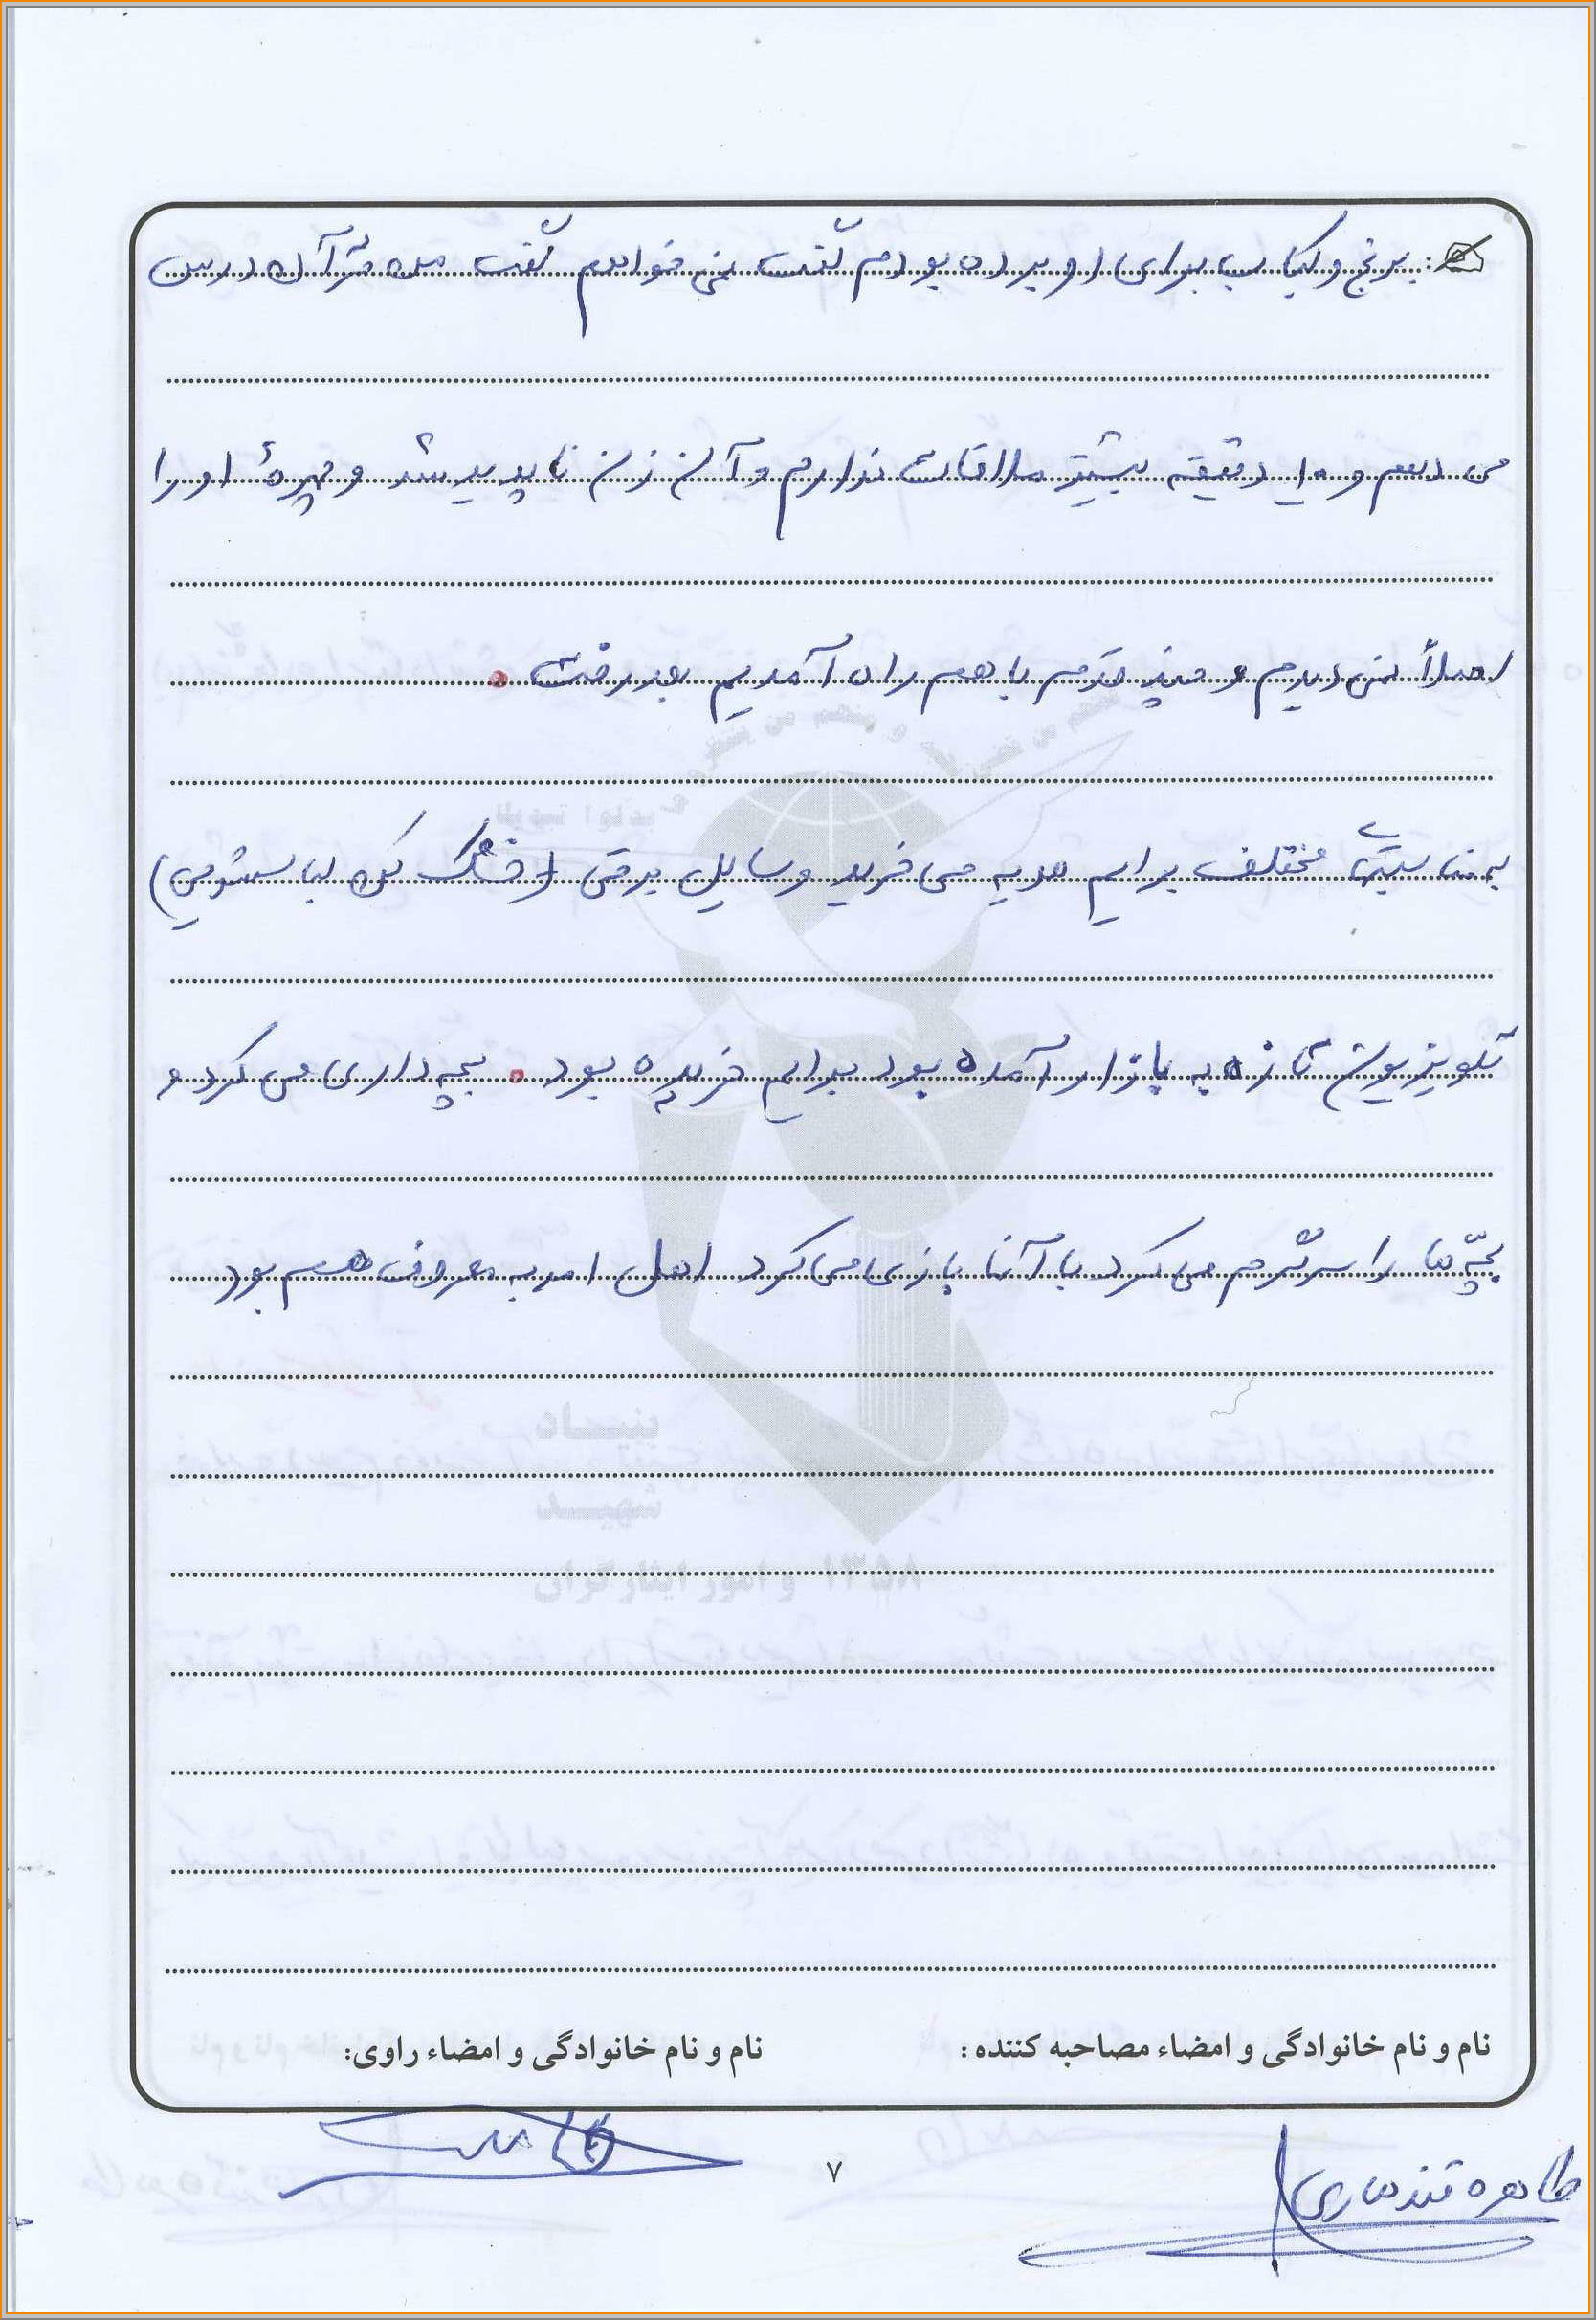 برنج و کباب برای او برده بودم گفت نمی خواهم گفت من قرآن درس
می دهم و ۱۰ دقیقه بیشتر ملاقات ندارم و آن زن ناپدید شد و چهرهٔ او را
اصلاً نمی دیدم و چند قدم با هم راه آمدیم بعد رفت .
به مناسبتها مختلف برایم هدیه می خرید وسایل برقی (خشک کن لباسشویی)
تلویزیون تازه به بازار آمده بود برایم خریده بود . بچه داری می کرد و
بچّه ها را سرگرم می کرد با آنها بازی می کرد اهل امر به معروف هم بود
بنیاد
شهید
و امور ایثارگران ۱۳۵۸
نام و نام خانوادگی و امضاء مصاحبه کننده :
نام و نام خانوادگی و امضاء راوی:
۷
طاهره قندهاری